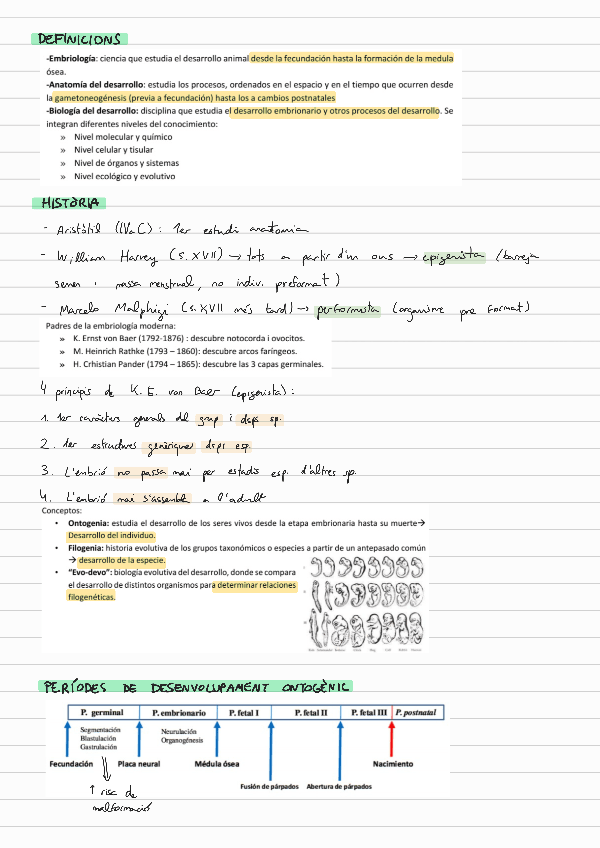 DEFINICIONS
-Embriología: ciencia que estudia el desarrollo animal desde la fecundación hasta la formación de la medula
ósea.
-Anatomía del desarrollo: estudia los procesos, ordenados en el espacio y en el tiempo que ocurren desde
la gametoneogénesis (previa a fecundación) hasta los a cambios postnatales
-Biología del desarrollo: disciplina que estudia el desarrollo embrionario y otros procesos del desarrollo. Se
integran diferentes niveles del conocimiento:
» Nivel molecular y químico
» Nivel celular y tisular
» Nivel de órganos y sistemas
» Nivel ecológico y evolutivo
HISTÒRIA
- Aristòtil (IV a.C): 1er estudi anatomia
- William Harvey (s. XVII) → tots a partir d'un ous → epigenista (barreja
semen i massa menstrual, no indiv. preformat)
- Marcelo Malphigi (s. XVII més tard) → performista (organisme pre format)
Padres de la embriología moderna:
» K. Ernst von Baer (1792-1876) : descubre notocorda i ovocitos.
» M. Heinrich Rathke (1793 – 1860): descubre arcos faríngeos.
» H. Crhistian Pander (1794 – 1865): descubre las 3 capas germinales.
4 principis de K. E. von Baer (epigenista):
1. 1er caràcters generals del grup i dsps sp.
2. 1er estructures genèriques dsps esp.
3. L'embrió no passa mai per estadis esp. d'altres sp.
4. L'embrió mai s'assembla a l'adult
Conceptos:
• Ontogenia: estudia el desarrollo de los seres vivos desde la etapa embrionaria hasta su muerte→
Desarrollo del individuo.
• Filogenia: historia evolutiva de los grupos taxonómicos o especies a partir de un antepasado común
→ desarrollo de la especie.
• "Evo-devo": biología evolutiva del desarrollo, donde se compara
el desarrollo de distintos organismos para determinar relaciones
filogenéticas.
PERÍODES DE DESENVOLUPAMENT ONTOGÈNIC
P. germinal P. embrionario P. fetal I P. fetal II P. fetal III P. postnatal
Segmentación Neurulación
Blastulación Organogénesis
Gastrulación
Fecundación Placa neural Médula ósea Nacimiento
Fusión de párpados Abertura de párpados
↑ risc de
malformació